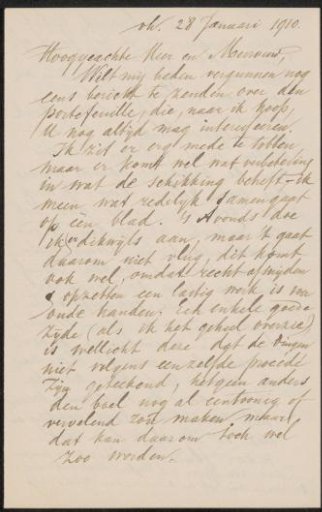 28 Januari 1910.
Hooggeachte Heer en Mevrouw,
Wilt mij heden vergunnen nog
eens bericht te zenden over den
portefeuille, die, naar ik hoop,
U nog altijd mag interesseren.
Ik zit er erg mede te tobben,
maar er komt wel wat verbetering
in wat de schikking betreft – ik
meen wat redelijk samengaat
op één blad. 's Avonds doe
ik er dikwijls aan, maar 't gaat
daarom niet vlug, dit komt
ook wel, omdat recht afsnijden
& opzetten een lastig werk is voor
oude handen. Een enkele goede
zijde (als ik het geheel overzie)
is wellicht deze dat de dingen
niet volgens eenzelfde procédé
zijn geteekend, hetgeen anders
den boel nog al eentoonig of
vervelend zou maken, maar
dat kan daarom toch wel
zoo worden.